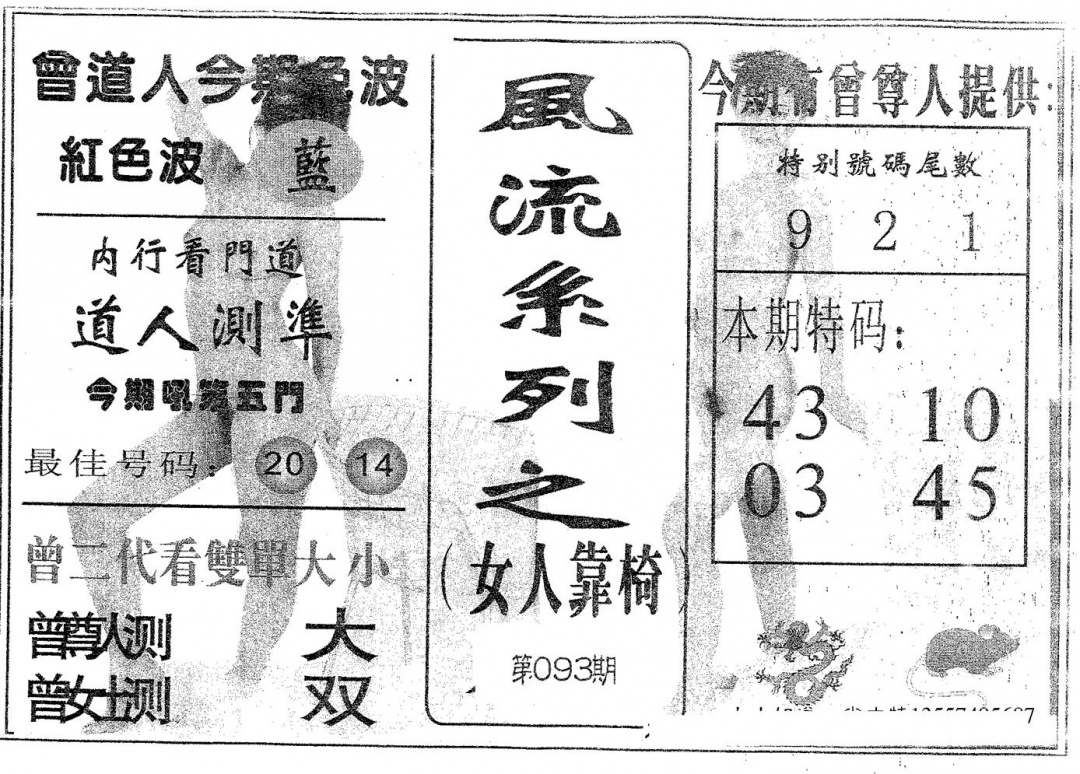 曾道人今期色波
紅色波 藍
内行看門道
道人測準
今期吼第五門
最佳号码: 20 14
曾二代看雙單大小
曾尊人测 大
曾女士测 双
風流系列之
(女人靠椅)
第093期
今期有曾尊人提供:
特别號碼尾數
9 2 1
本期特码:
43 10
03 45